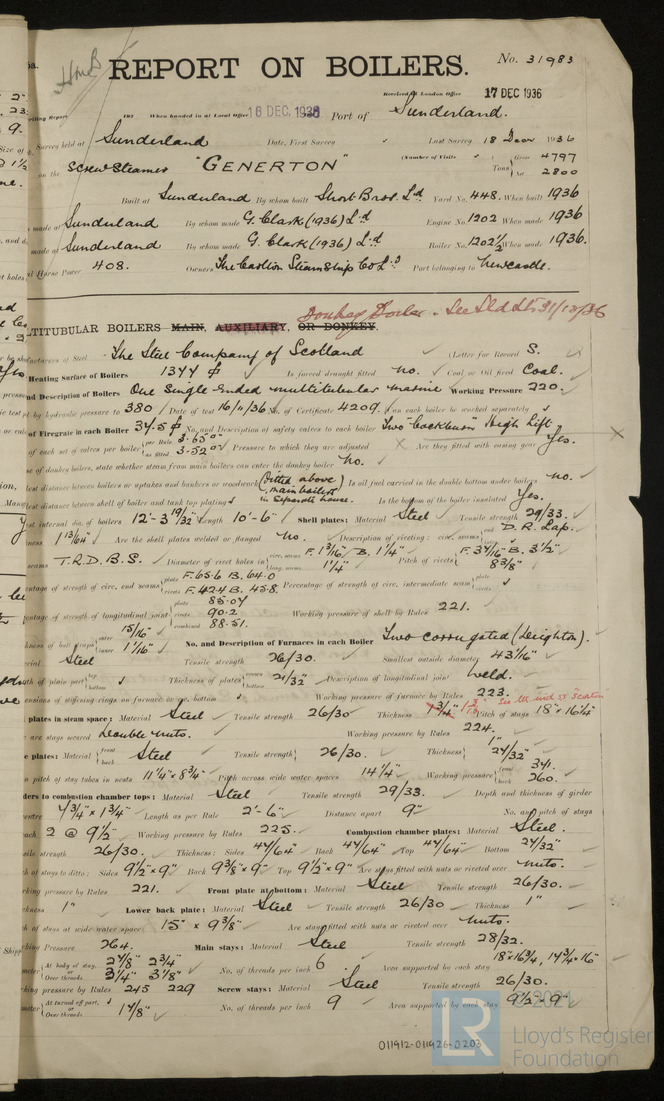 REPORT ON BOILERS.
No. 31983
Received at London Office 17 DEC 1936
193 When handed in at Local Office 16 DEC. 1936 Port of Sunderland.
Survey held at Sunderland Date, First Survey Last Survey 18 1936
on the Screw Steamer "GENERTON" (Number of Visits Tons Gross 4797 Net 2800
Built at Sunderland By whom built Short Bros. Ld Yard No. 448. When built 1936
made at Sunderland By whom made G. Clark (1936) Ld Engine No. 1202 When made 1936
made at Sunderland By whom made G. Clark (1936) Ld Boiler No. 1202½ When made 1936.
Horse Power 408. Owners The Carlton Steam Ship Co Ld Port belonging to Newcastle.
Donkey Boiler. See Sld 31/12/36
LTITUBULAR BOILERS MAIN, AUXILIARY, OR DONKEY.
The Steel Company of Scotland (Letter for Record S.
Heating Surface of Boilers 1344 Is forced draught fitted no. Coal or Oil fired Coal.
nd Description of Boilers One Single Ended multitubular marine Working Pressure 220.
by hydraulic pressure to 380 Date of test 16/11/36 No. of Certificate 4209. Can each boiler be worked separately
of Firegrate in each Boiler 34.5 No. and Description of safety valves to each boiler Two "Cockburn" High Lift
of each set of valves per boiler per Rule 3.65 as fitted 3.52 Pressure to which they are adjusted Are they fitted with easing gear Yes.
of donkey boilers, state whether steam from main boilers can enter the donkey boiler no.
distance between boilers or uptakes and bunkers or woodwork (Fitted above main boilers in separate house. Is oil fuel carried in the double bottom under boilers no.
distance between shell of boiler and tank top plating Is the bottom of the boiler insulated Yes.
internal dia. of boilers 12'-3 19/32" Length 10'-6" Shell plates: Material Steel Tensile strength 29/33.
1 13/64" Are the shell plates welded or flanged no. Description of riveting: circ. seams end D.R. Lap.
seams T.R.D.B.S. Diameter of rivet holes in circ. seams F. 1 3/16" B. 1¼" long. seams 1¼" Pitch of rivets F. 3 7/16" B. 3½" 8 3/8"
entage of strength of circ. end seams plate F. 65.6 B. 64.0 rivets F. 42.4 B. 43.8. Percentage of strength of circ. intermediate seam
entage of strength of longitudinal joint plate 85.07 rivets 90.2 combined 88.51. Working pressure of shell by Rules 221.
kness of butt straps outer 15/16" inner 1 1/16" No. and Description of Furnaces in each Boiler Two corrugated (Deighton).
rial Steel Tensile strength 26/30. Smallest outside diameter 43 1/16"
th of plain part top bottom Thickness of plates crown bottom 21/32" Description of longitudinal joint weld.
ensions of stiffening rings on furnace or c.c. bottom Working pressure of furnace by Rules 223.
plates in steam space: Material Steel Tensile strength 26/30 Thickness Pitch of stays 18" × 16¼"
are stays secured Double nuts. Working pressure by Rules 224.
e plates: Material front back Steel Tensile strength 26/30. Thickness 1" 27/32"
n pitch of stay tubes in nests 11¼" × 8¾" Pitch across wide water spaces 14¼" Working pressure front 341. back 260.
ders to combustion chamber tops: Material Steel Tensile strength 29/33. Depth and thickness of girder
entre 7¾" × 1¾" Length as per Rule 2'-6" Distance apart 9" No. and pitch of stays
each 2 @ 9½" Working pressure by Rules 225. Combustion chamber plates: Material Steel.
sile strength 26/30. Thickness: Sides 47/64" Back 47/64" Top 47/64" Bottom 27/32"
h of stays to ditto: Sides 9½" × 9" Back 9 3/8" × 9" Top 9½" × 9" Are stays fitted with nuts or riveted over nuts.
king pressure by Rules 221. Front plate at bottom: Material Steel Tensile strength 26/30.
kness 1" Lower back plate: Material Steel Tensile strength 26/30 Thickness 1"
of stays at wide water space 15" × 9 3/8" Are stays fitted with nuts or riveted over nuts.
Pressure 264. Main stays: Material Steel Tensile strength 28/32.
meter At body of stay, 2 7/8" 2 3/4" Over threads 3 1/4" 3 1/8" No. of threads per inch 6 Area supported by each stay 18" × 16¾", 14¾" × 16"
king pressure by Rules 245 229 Screw stays: Material Steel Tensile strength 26/30.
meter At turned off part, Over threads 1 7/8" No. of threads per inch 9 Area supported by each stay 9½" × 9"
© 2021
LR
Lloyd's Register
Foundation
011912-011926-0203